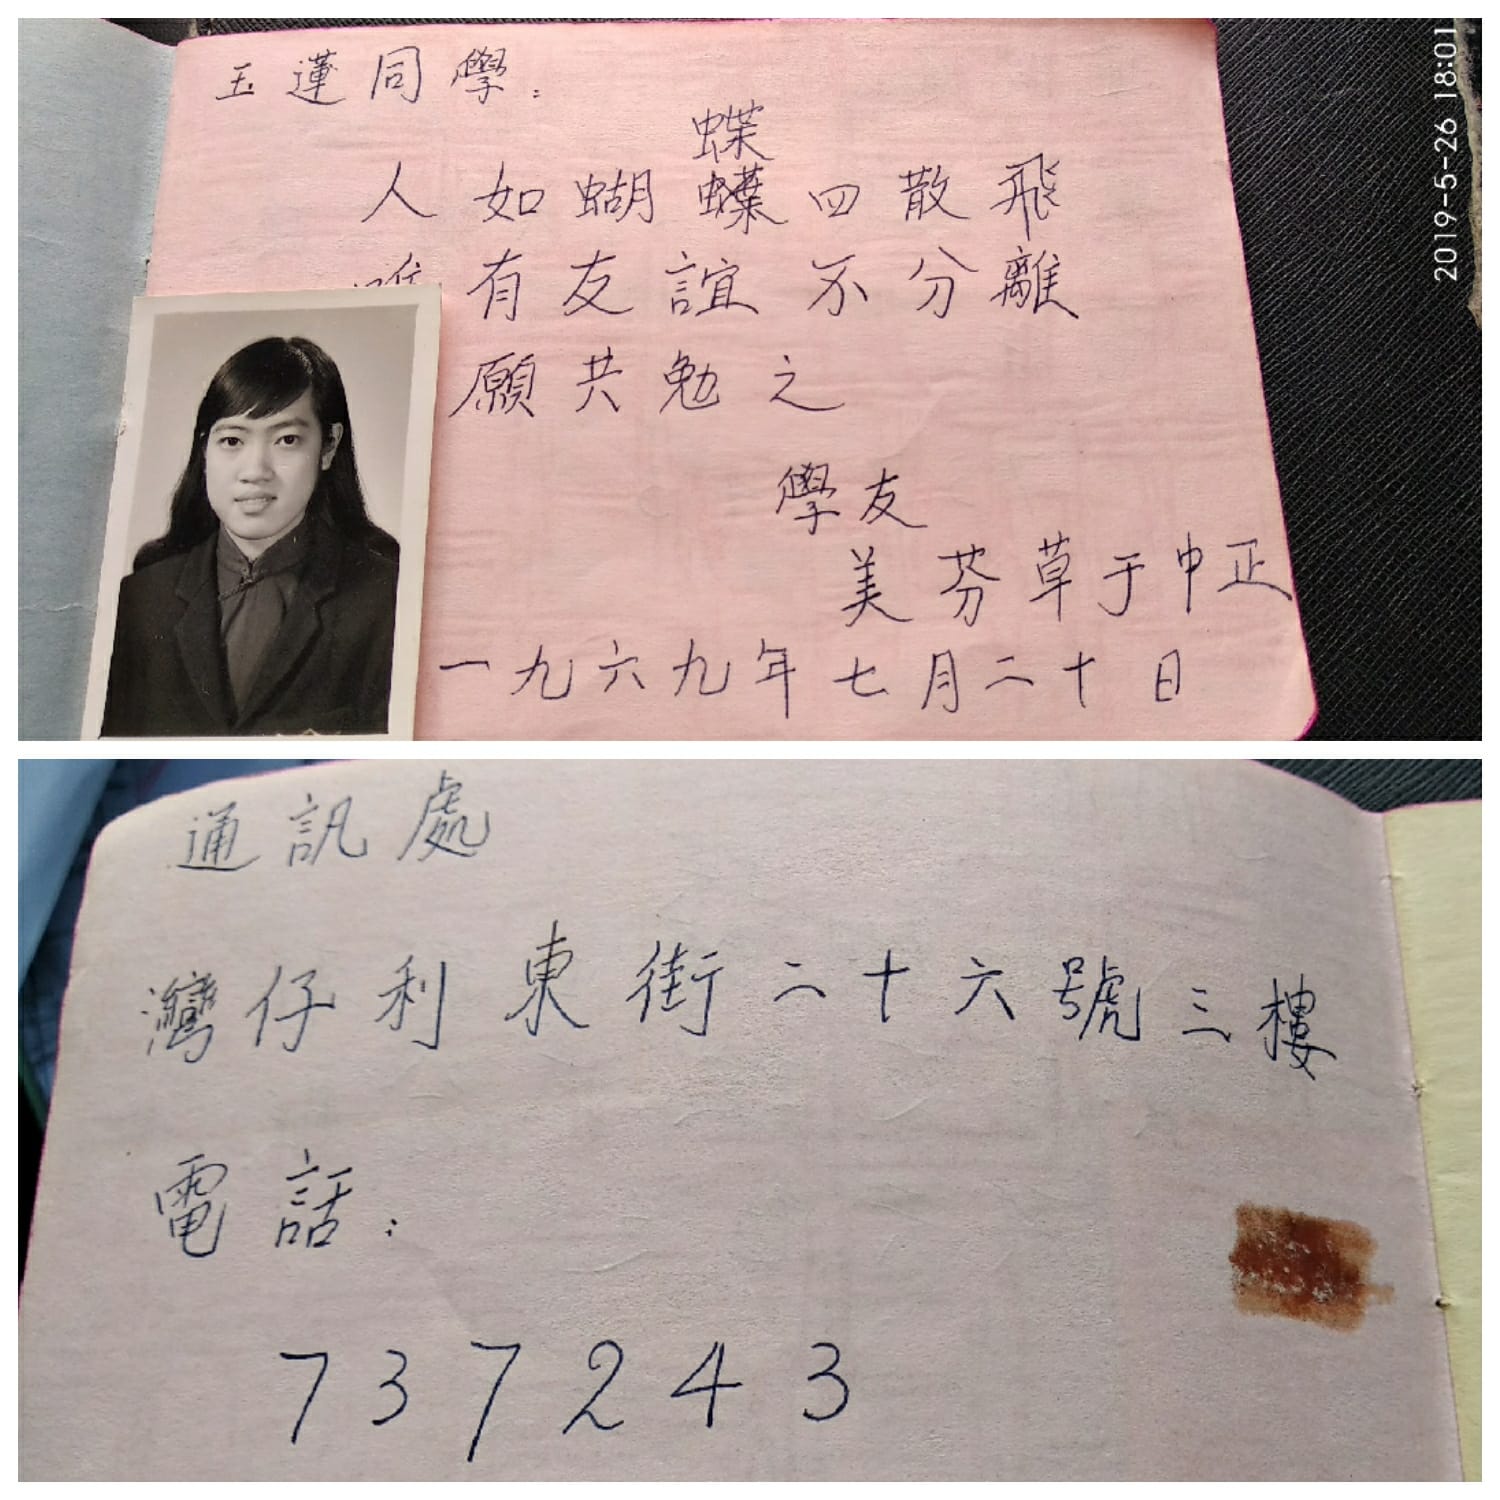 玉蓮同學:
蝶
人如蝴蝶四散飛
唯有友誼不分離
願共勉之
學友
美芬草于中正
一九六九年七月二十日
2019-5-26 18:01
通訊處
灣仔利東街二十六號三樓
電話:
737243